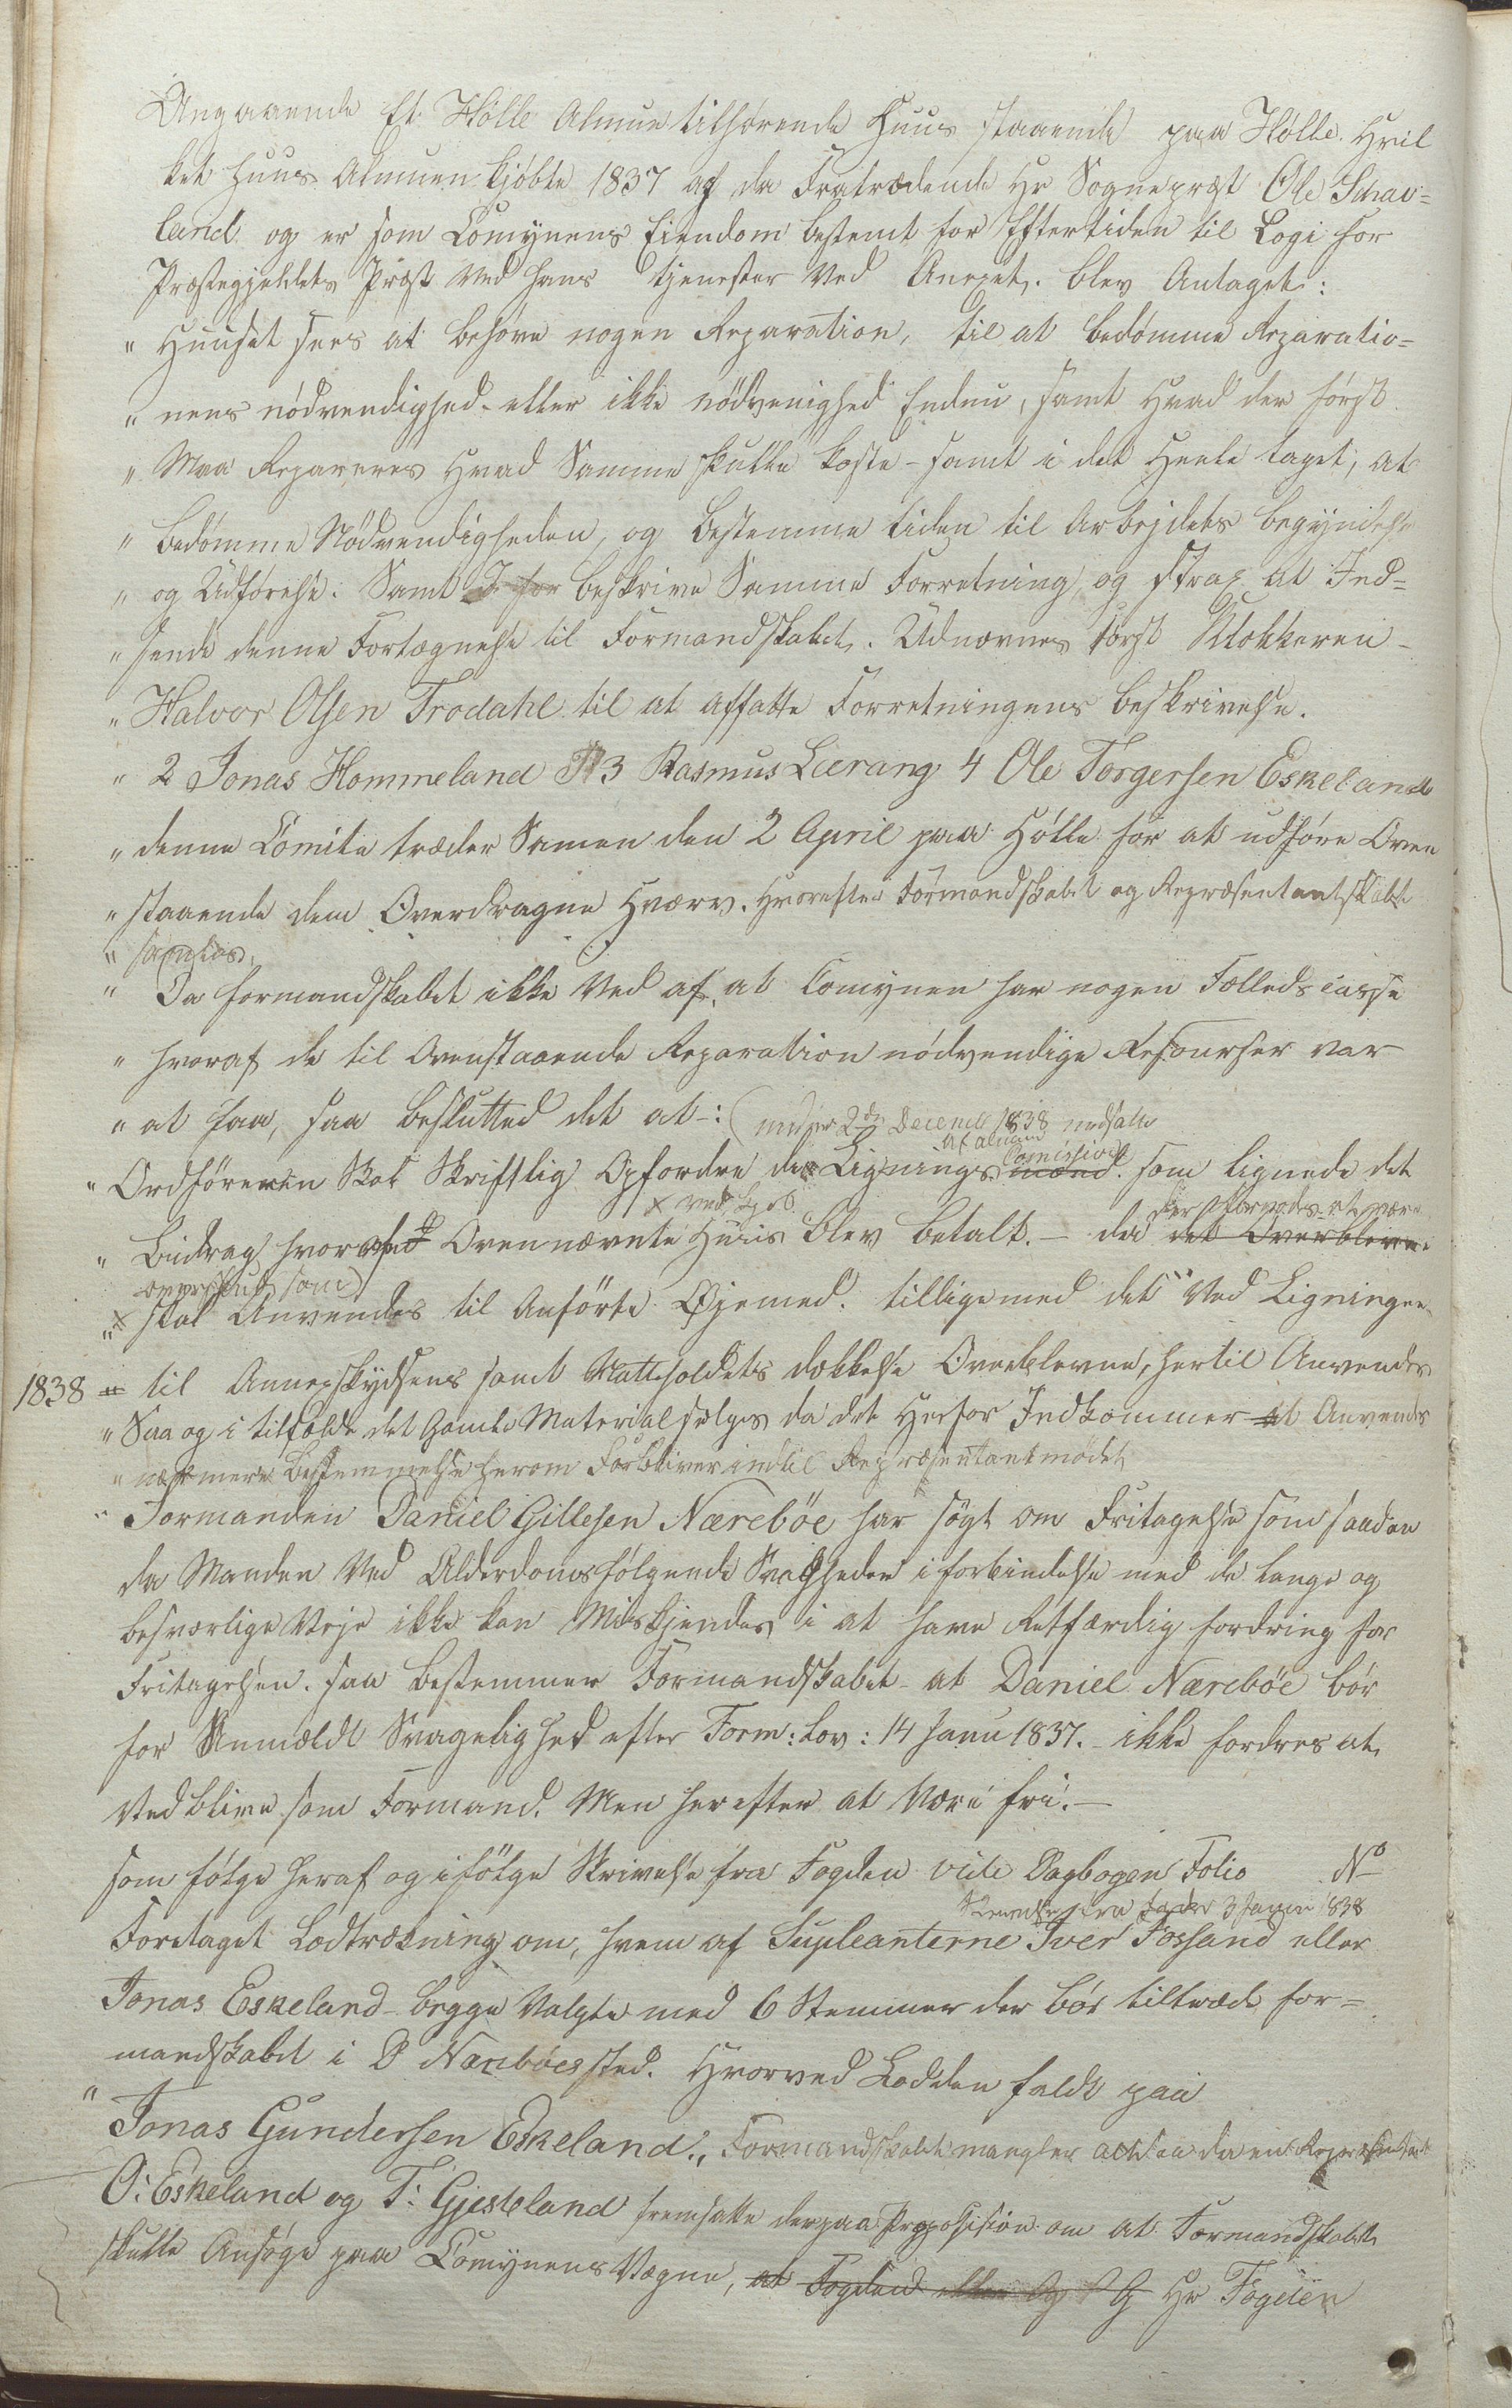 Angaaende Et Hölle Almue tilhörende Huus staaende paa Hölle. Hvil
ket Huus Almuen kjøbte 1837 af da Fratrædende Hr Sognepræst Ole Schav=
land og er som Comynens Eiendom bestemt for Eftertiden til Logi for
Præstegjeldets Præst Ved hans tjenester Ved Anexet. blev Antaget:
" Huuset sees at behöve nogen Reparation, til at bedömme Reparatio=
" nens nödvendighed eller ikke nödvenighed Endnu, samt Hvad der först
" Maa Repareres Hvad Samme skulle koste - samt i det Heele taget, at
" bedömme Nödvendigheden, og bestemme tiden til Arbejdets begyndelse
" og Udförelse: Samt beskrive Samme Forretning, og strax at Ind=
" sende denne Fortegnelse til Formandskabet. Udnævnes först Klokkeren -
" Halvor Olsen Trodahl til at affatte Forretningens beskrivelse.
" 2 Jonas Hommeland 3 Rasmus Lærang 4 Ole Torgersen Eskeland
" denne Comite træder Samen den 2 April paa Hölle for at udföre Oven
" staaende dem Overdragne Hværv. Hvorefter Formandskabet og Repræsentantskabet
" samles.
" Da Formandskabet ikke Ved af, at Comynen har nogen Fælleds casse
" hvoraf de til Ovenstaaende Reparation nödvendige Resourser var
" at faa, saa beslutted det at -: (under 2den Decembr 1838 nedsatte
af almuen Comission
" Ordföreren Skal Skriftlig Opfordre de Lignings mænd. som lignede det
x ved Kjøb der formodes at være
" Bidrag hvorved Ovennævnte Huus blev betalt. - da det Overblevne
overskud som)
" x skal Anvendes til Anförte Öjemed. tilligemed det Ved Ligningen
1838 " til Annexskydsens samt Natteholdets dækkelse Overblevne, hertil Anvendes
" Saa og i tilfælde det Gamle Material sælges da det Herfor Indkommer at Anvendes
" nærmere bestemmelse herom Forbliver indtil Repræsentantmödet
" Formanden Daniel Gillesen Nærebøe har sögt om Fritagelse som saadan
da Manden Ved Alderdoms følgende Svagheder i forbindelse med de lange og
besværlige Veje ikke kan Miskjendes i at have Retfærdig fordring for
Fritagelsen. saa bestemmer Formandskabet at Daniel Nærebøe bör
for Anmeldt Svagelighed efter Form: Lov: 14 Janu 1837. - ikke fordres at
Vedblive som Formand. Men herefter at Være fri. -
som følge heraf og ifølge Skrivelse fra Fogden vide Dagbogen Folio No
Skrivelse fra Fogden 3 Janu 1838
Foretaget Lodtrækning om, hvem af Supleanterne Iver Fossand eller
Jonas Eskeland - begge Valgte med 6 Stemmer der bör tiltræde For=
mandskabet i D Nærebøes sted. Hvorved Lodden faldt paa
" Jonas Gundersen Eskeland., Formandskabet mangler altsaa da en Repræsentant
O: Eskeland og T: Gjesteland fremsatte derpaa Proposision om at Formandskabet
skulle Ansöge paa Comynens Vegne, at Fogden eller Hr Fogden